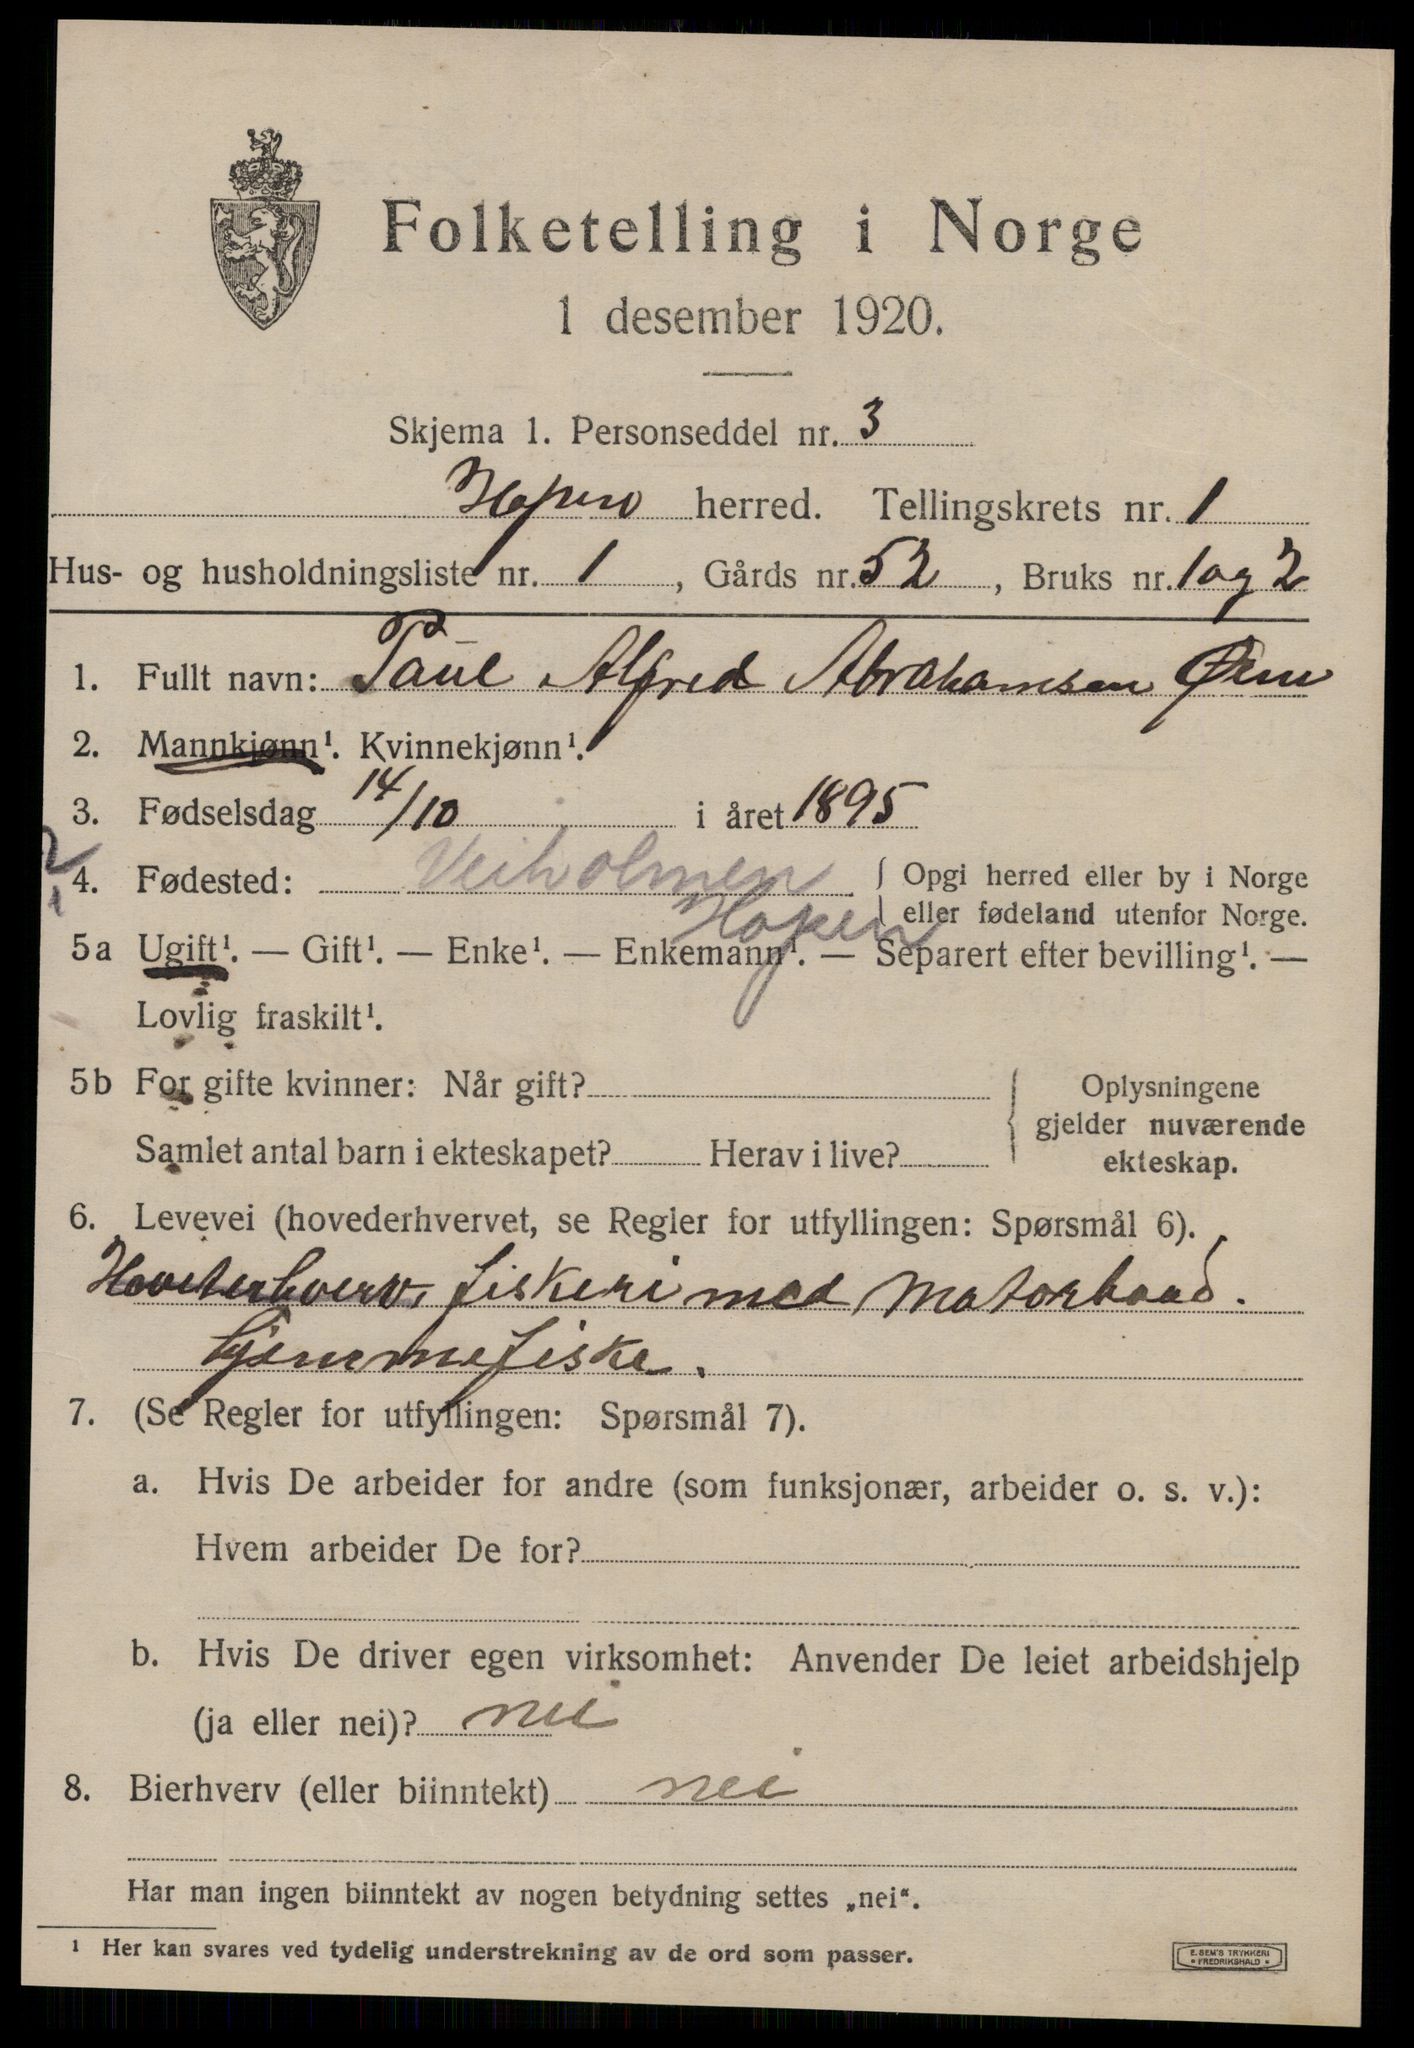 Folketelling i Norge
1 desember 1920.
Skjema 1. Personseddel nr. 3
Hopen herred. Tellingskrets nr. 1
Hus- og husholdningsliste nr. 1, Gårds nr. 52, Bruks nr. 1 og 2
1. Fullt navn: Paul Alfred Abrahamsen Øien
2. Mannkjønn¹. Kvinnekjønn¹.
3. Fødselsdag 14/10 i året 1895
4. Fødested: Veiholmen { Opgi herred eller by i Norge
Hopen eller fødeland utenfor Norge.
5a Ugift¹. — Gift¹. — Enke¹. — Enkemann¹. — Separert efter bevilling¹. —
Lovlig fraskilt¹.
5b For gifte kvinner: Når gift? { Oplysningene
gjelder nuværende
Samlet antal barn i ekteskapet? Herav i live? ekteskap.
6. Levevei (hovederhvervet, se Regler for utfyllingen: Spørsmål 6).
Hoveterhverv, fiskeri med Motorbaad.
hjemmefiske.
7. (Se Regler for utfyllingen: Spørsmål 7).
a. Hvis De arbeider for andre (som funksjonær, arbeider o. s. v.):
Hvem arbeider De for?
b. Hvis De driver egen virksomhet: Anvender De leiet arbeidshjelp
(ja eller nei)? nei
8. Bierhverv (eller biinntekt) nei
Har man ingen biinntekt av nogen betydning settes „nei“.
¹ Her kan svares ved tydelig understrekning av de ord som passer.
E. SEM'S TRYKKERI
• FREDRIKSHALD •